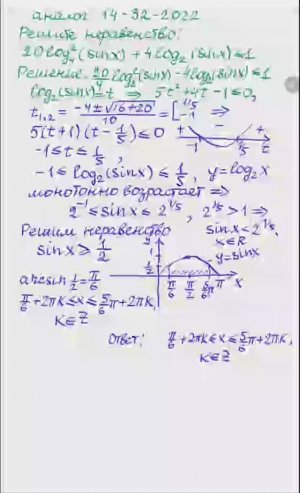 аналог 14-32-2022
Решите неравенство:
20log₄²(sinx)+4log₂(sinx)≤1
Решение. 20/4 log₂²(sinx)+4log₂(sinx)≤1
log₂(sinx)=t ⇒ 5t²+4t-1≤0,
t₁,₂ = (-4±√(16+20))/10 = [1/5 -1 ⇒
5(t+1)(t-1/5)≤0 + - + -1 1/5 t
-1≤t≤1/5,
-1≤log₂(sinx)≤1/5, y=log₂x
монотонно возрастает ⇒
2⁻¹≤sinx≤2^(1/5), 2^(1/5)>1 ⇒
Решим неравенство sinx<2^(1/5),
x∈R
sinx≥1/2 2 1 1/2 y=sinx
arcsin 1/2 = π/6 π/6 π/2 5π/6 π x
π/6+2πk≤x≤5/6π+2πk,
k∈Z
Ответ: π/6+2πk≤x≤5/6π+2πk,
k∈Z